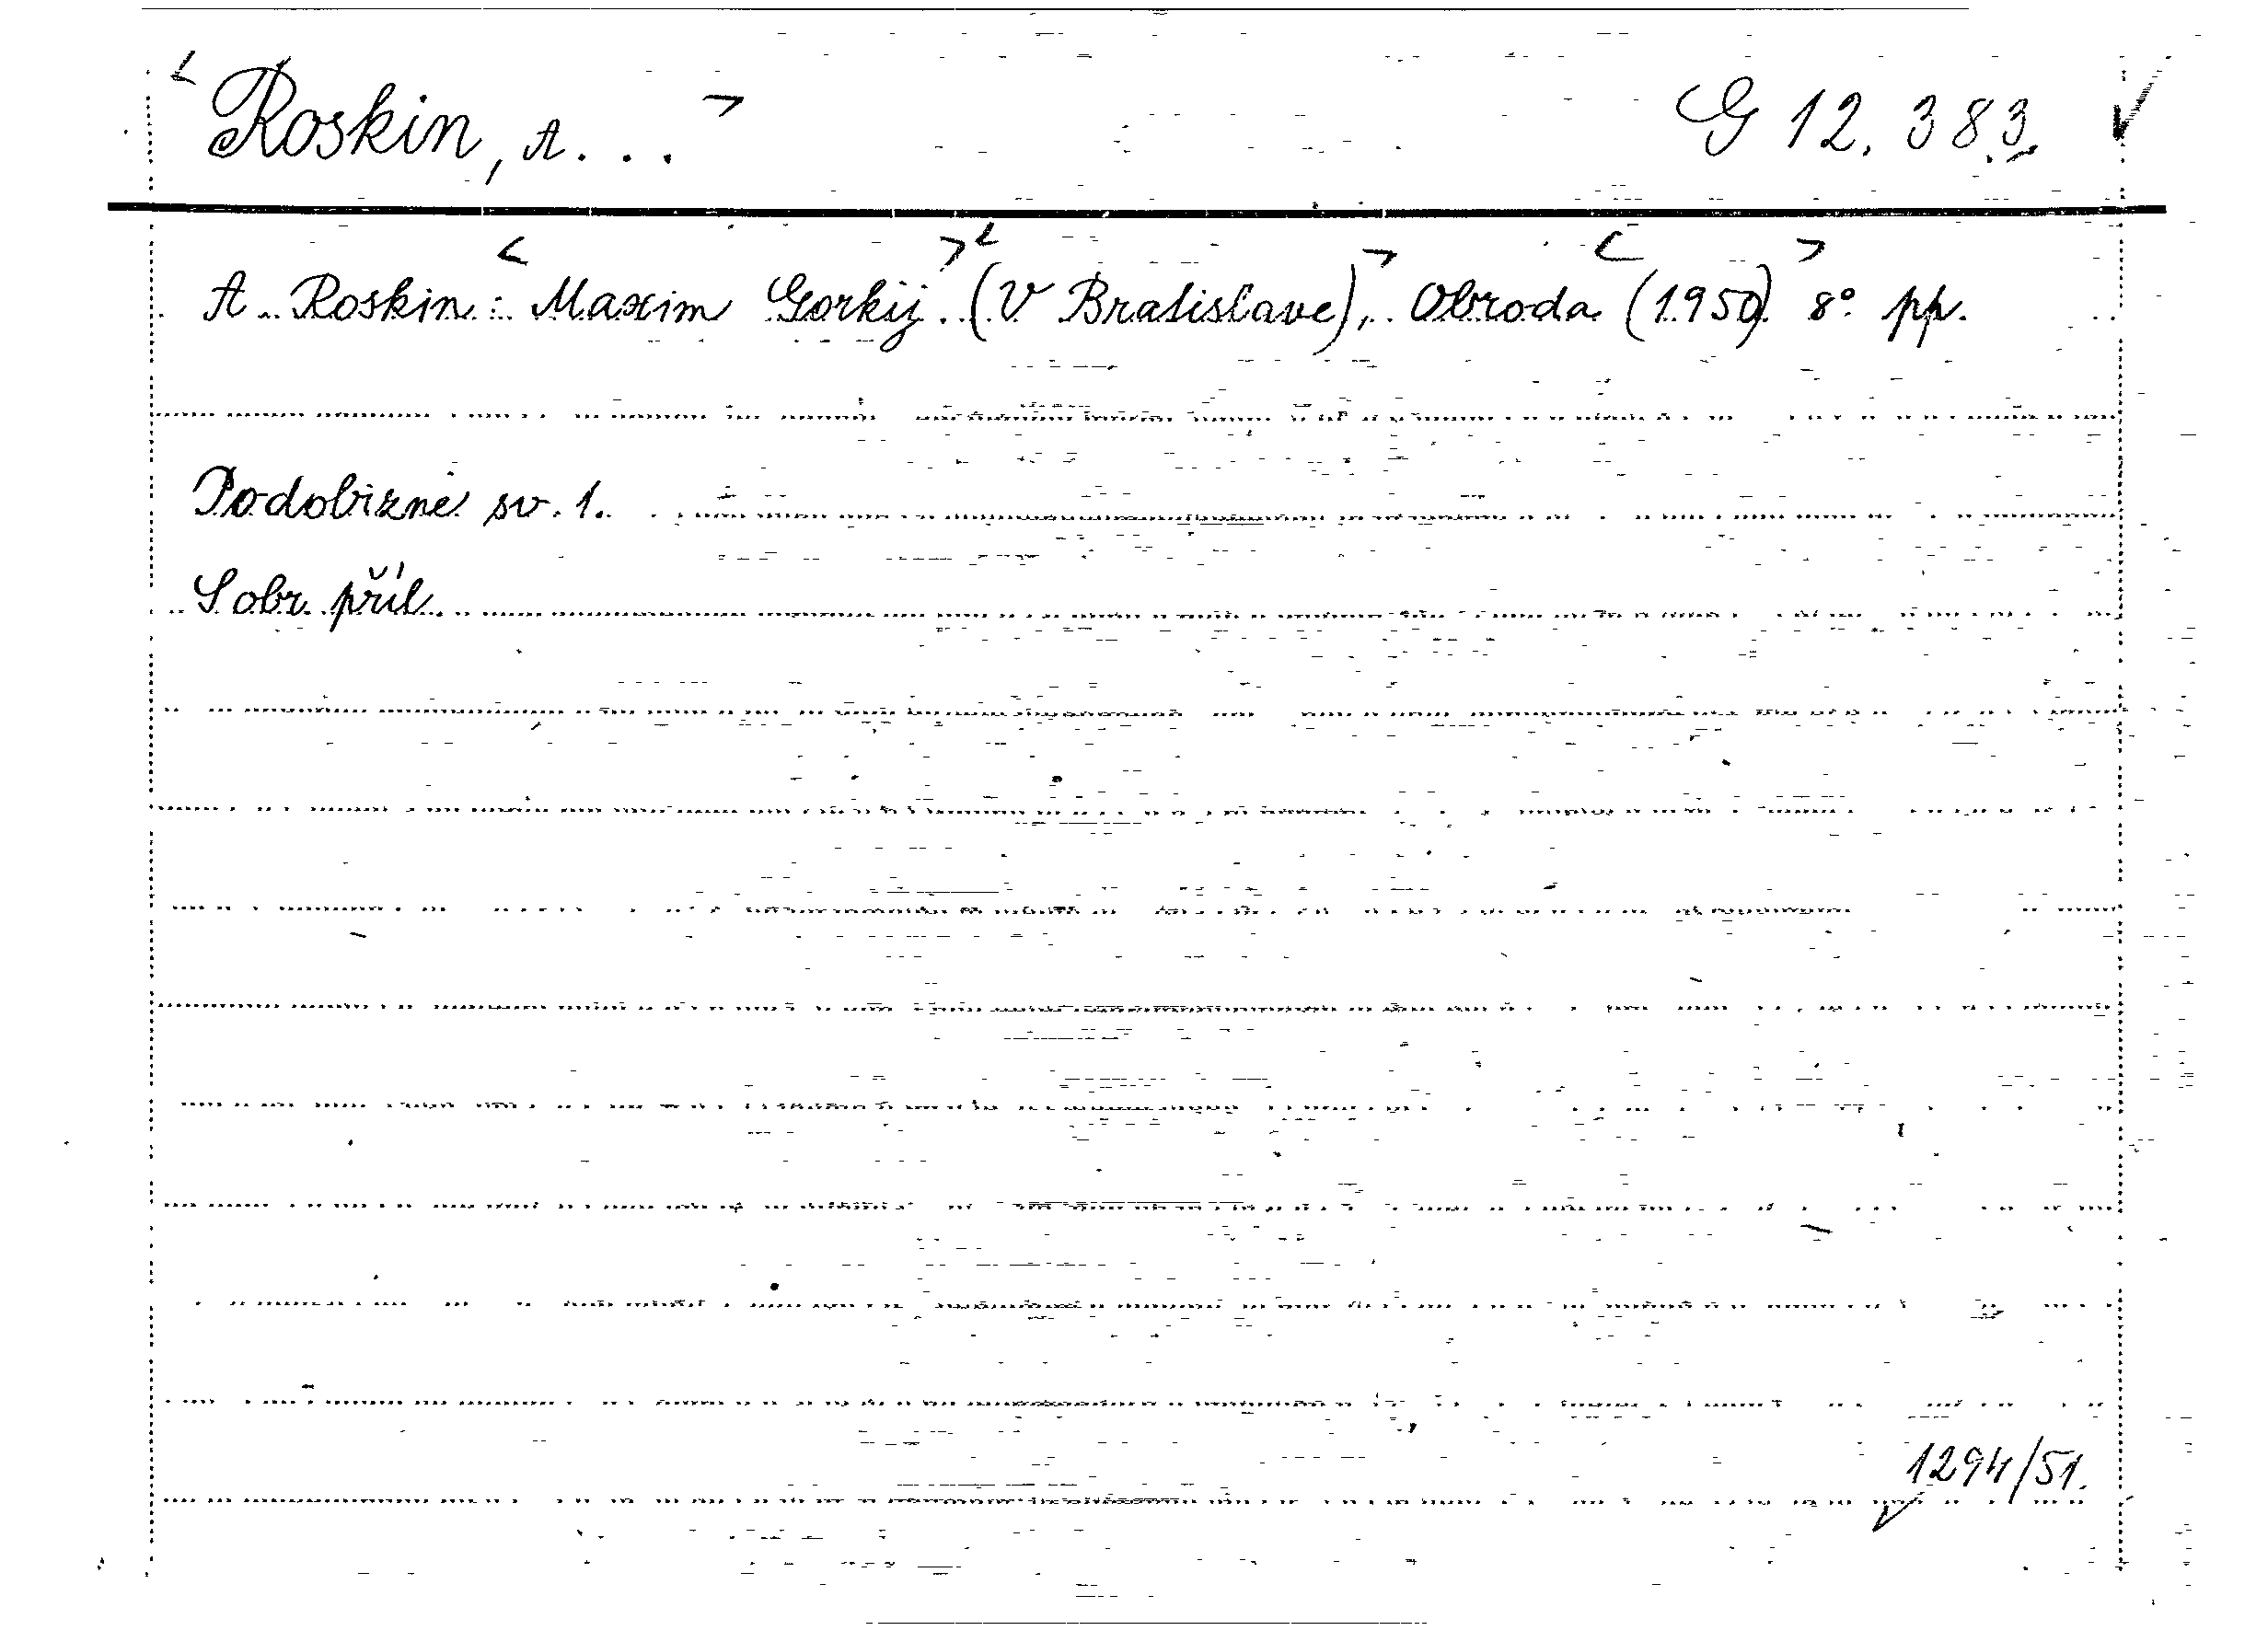 <Roskin, A...> G 12.383.
A. Roskin: <Maxim Gorkij.> <(V Bratislave),> Obroda <(1950)> 8° pp.
Podobizne sv. 1.
S obr. příl.
1294/51.